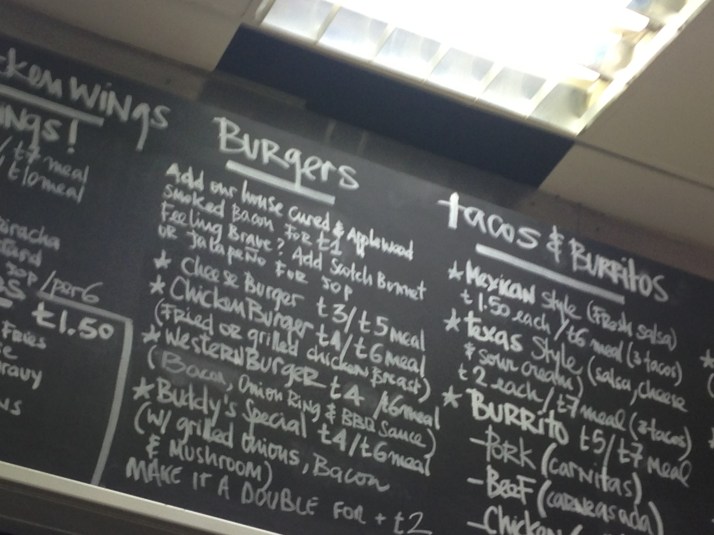 cken WINGS
INGS!
/ £7 meal
/ £10 meal
50p / per 6
£1.50
Fries
Burgers
Add our house cured & Applewood
smoked Bacon FOR £1
Feeling Brave? Add Scotch Bonnet
OR Jalapeño FOR 50p
★ Cheese Burger £3/£5 meal
★ Chicken Burger £4/£6 meal
(Fried or grilled chicken Breast)
★ WESTERN BURGER £4 /£6 meal
(Bacon, Onion Ring & BBQ Sauce)
★ Buddy's Special £4/£6 meal
(w/ grilled Onions, Bacon
& Mushroom)
MAKE IT A DOUBLE FOR + £2
tacos & BURRITOS
★ Mexican Style (Fresh salsa)
£1.50 each /£6 meal (3 tacos)
★ Texas Style (salsa, cheese
& sour cream)
£2 each/£7 meal (3 tacos)
★ BURRITO £5/£7 meal
- Pork (carnitas)
- Beef (carne asada)
- Chicken